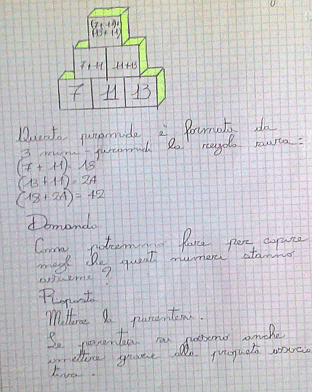 (7+11)+
(13+11)
7+11 11+13
7 11 13
Questa piramide è formata da
3 mini-piramidi la regola
(7 + 11) 18
(13 + 11) = 24
(18 + 24) = 42
Domanda
Come potremmo fare per capire
che questi numeri stanno
insieme?
Risposta
Mettere la parentesi.
Le parentesi si possono anche
omettere grazie alla proprietà associa
tiva.